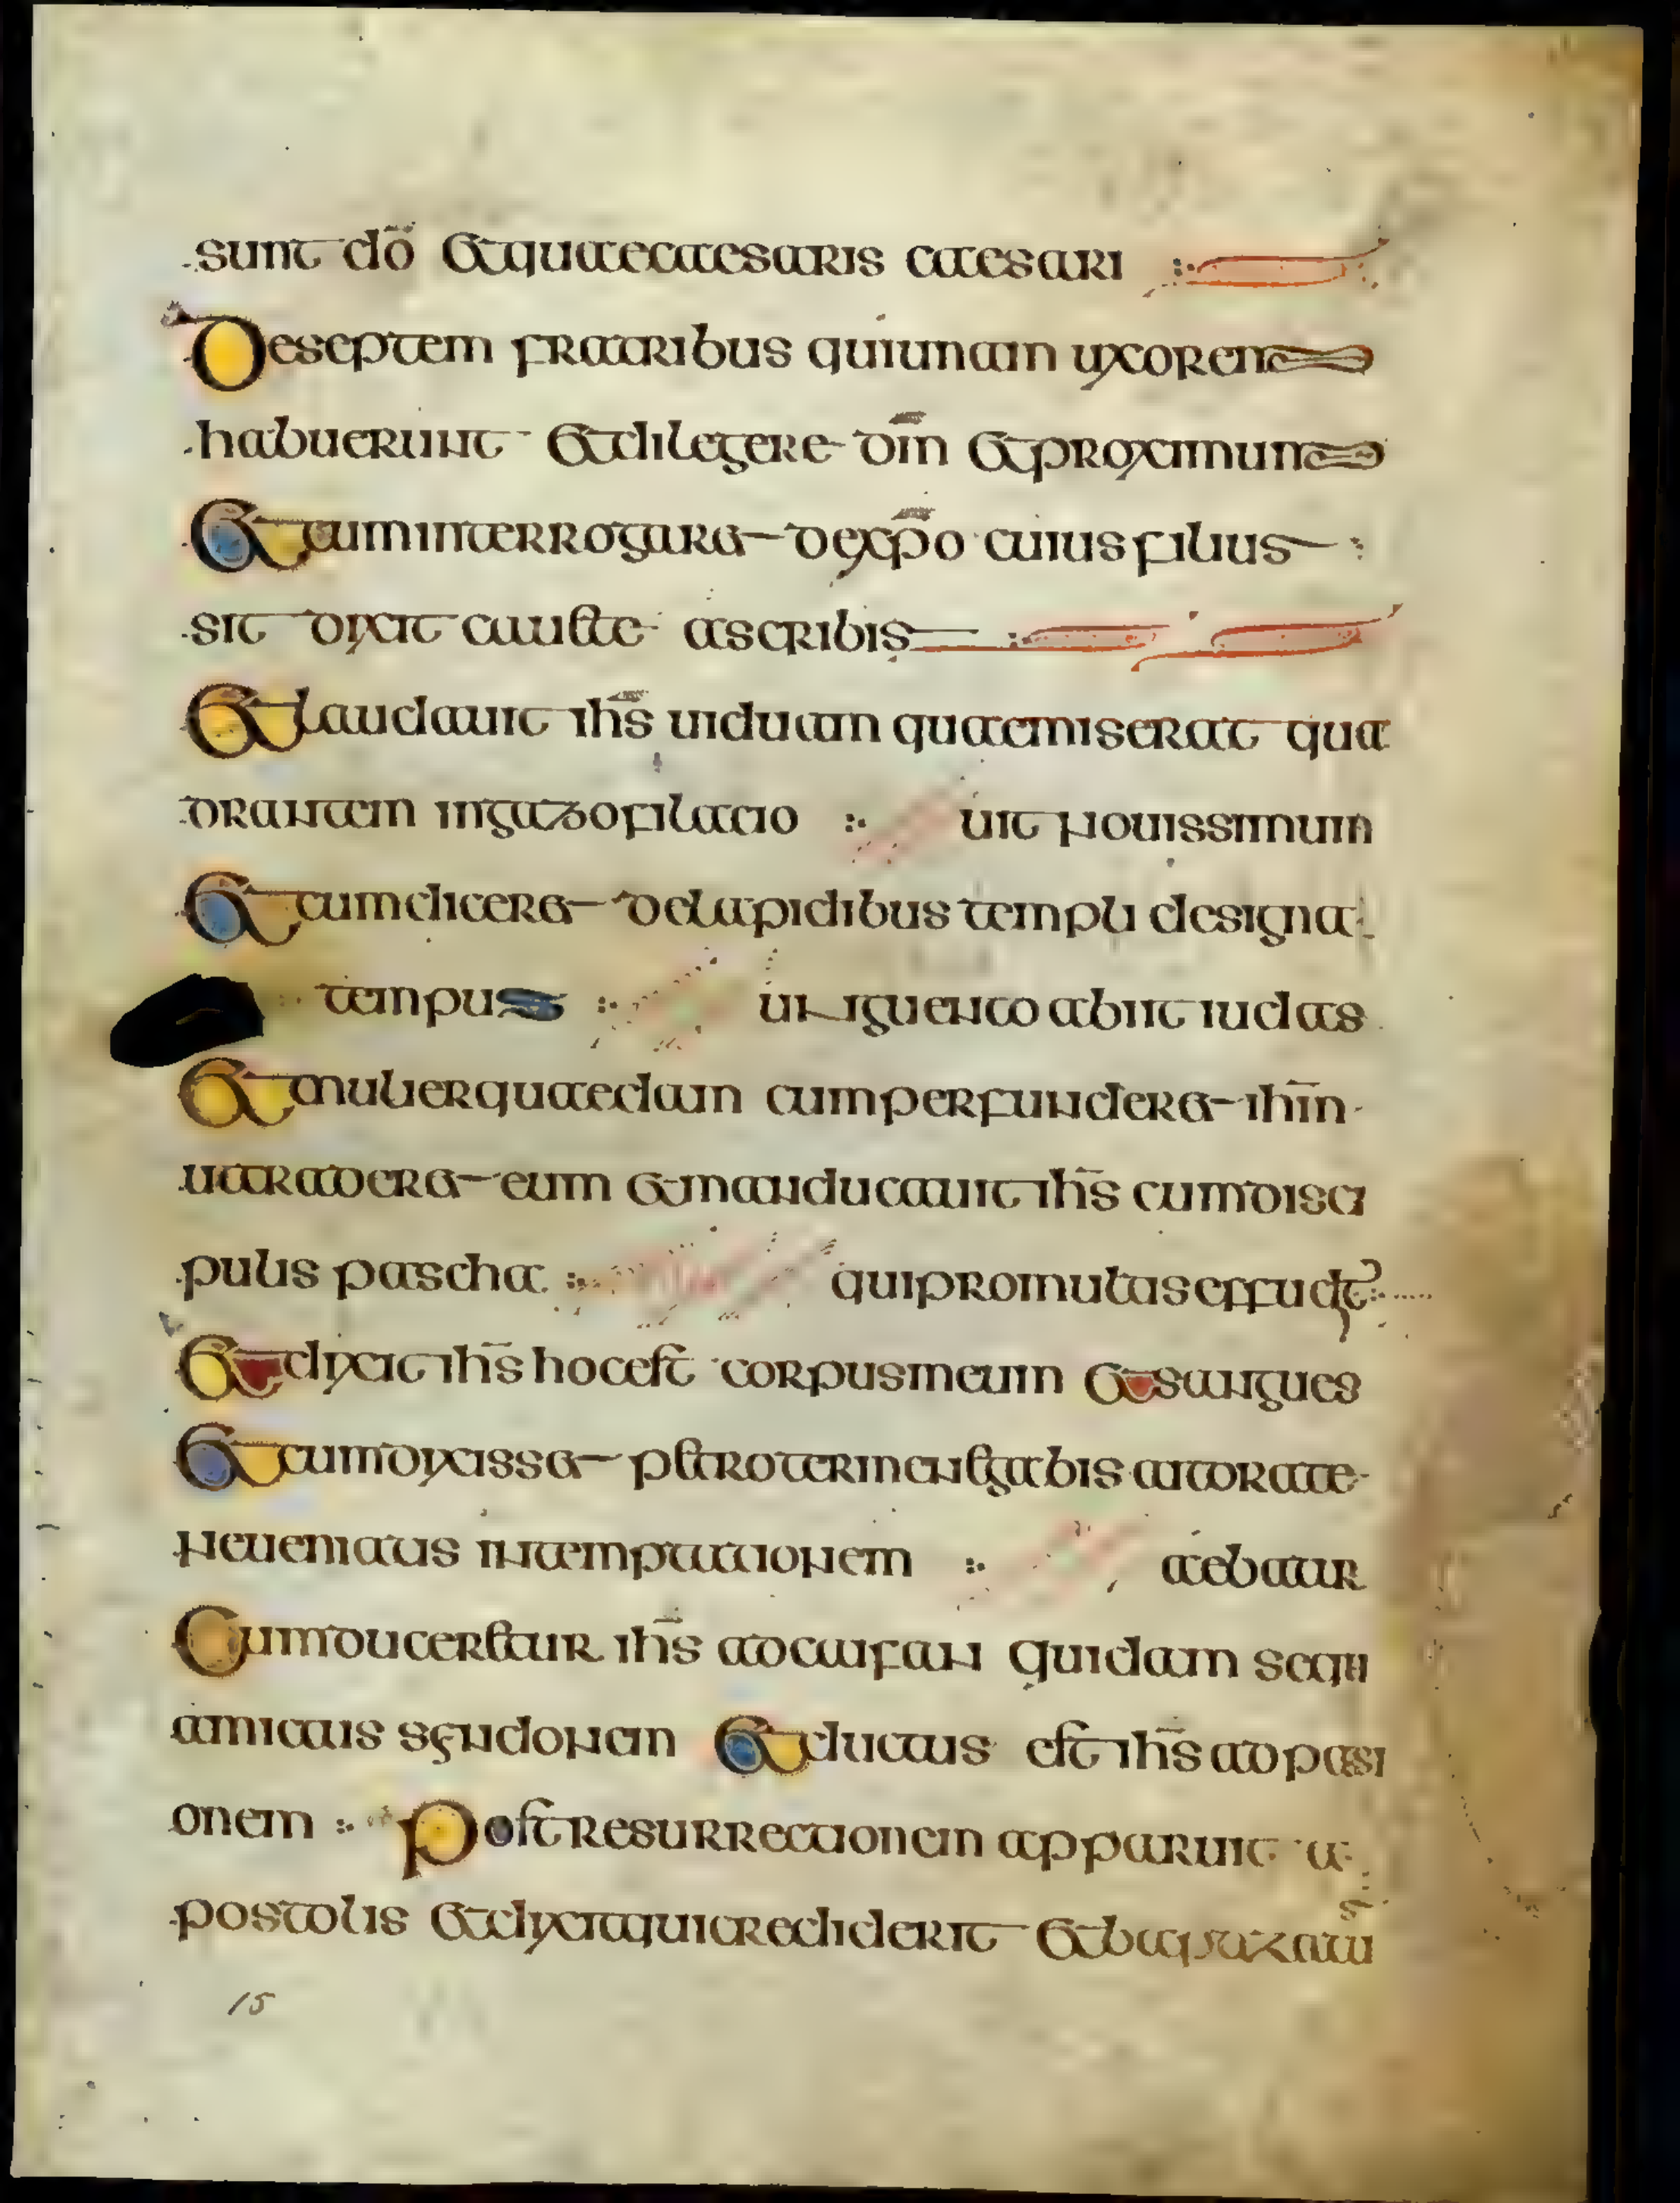 sunt dō et quae caesaris caesari
De septem fratribus qui unam uxorem
habuerunt et dilegere dm̄ et proximum
Et cum interrogaret de xp̄o cuius filius
sit dixit cauiste a scribis
Et laudauit ihs̄ uiduam quae miserat qua
drantem in gazofilacio uit nouissimum
Et cum diceret de lapidibus templi designa
tempus unguento abiit iudas
Et mulier quaedam cum perfunderet ihm̄
ut traderet eum et manducauit ihs̄ cum disci
pulis pascha qui pro multis effudet
Et dixit ihs̄ hoc est corpus meum et sangues
Et cum dixisset petro ter me negabis et orate
ne ueniatis in temptationem aebatur
Cum duceretur ihs̄ ad caifan quidam sequ
amictus sendonem Et ductus est ihs̄ ad pasi
onem Post resurrectionem apparuit a
postolis et dixit qui crediderit et
15